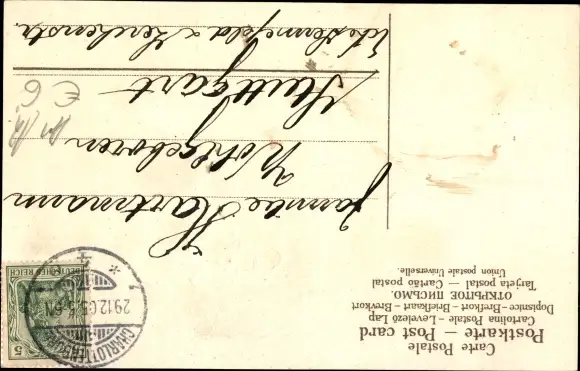 Carte Postale
Postkarte — Post card
Cartolina Postale – Levelező Lap
Dopisnice – Brefkort – Briefkaart – Brevkort
ОТКРЫТОЕ ПИСЬМО.
Tarjeta postal — Cartão postal
Union postale Universelle.
5
DEUTSCHES REICH
CHARLOTTENBURG
29.12.05. 5-6N
Familie Hartmann
Wohlgeboren
Stuttgart
Ecke Sennefeld & Lerchenstr.
€ 6